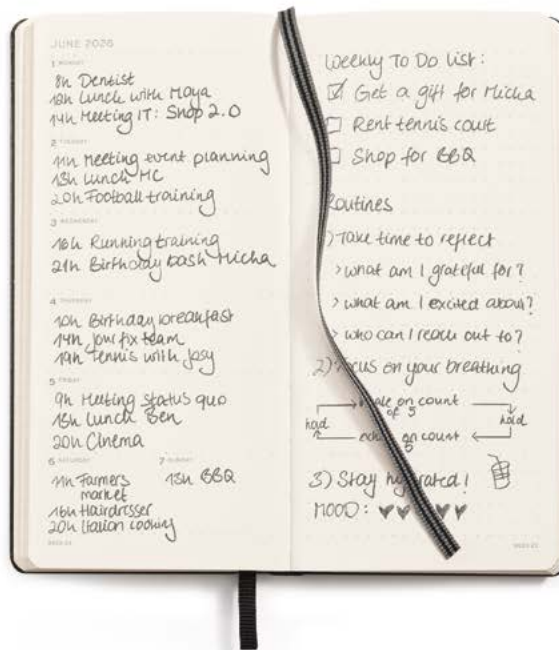 JUNE 2026
1 MONDAY
8h Dentist
12h Lunch with Maya
14h Meeting IT: Shop 2.0
2 TUESDAY
11h Meeting event planning
13h Lunch MC
20h Football training
3 WEDNESDAY
16h Running training
21h Birthday bash Micha
4 THURSDAY
10h Birthday breakfast
14h Jour fix team
19h Tennis with Josy
5 FRIDAY
9h Meeting status quo
13h Lunch Ben
20h Cinema
6 SATURDAY
11h Farmers
market
16h Hairdresser
20h Italian cooking
7 SUNDAY
13h BBQ
Weekly To Do List:
Get a gift for Micha
Rent tennis court
Shop for BBQ
Routines
1) Take time to reflect
> what am I grateful for?
> what am I excited about?
> who can I reach out to?
2) Focus on your breathing
on count
of 5
hold
hold
on count
5
3) Stay hydrated!
MOOD: